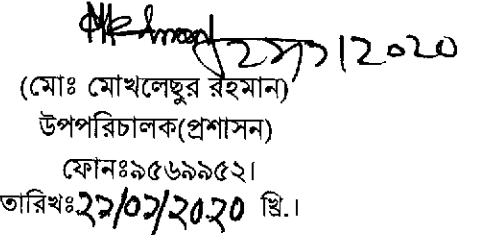 (মোঃ মোখলেছুর রহমান)
উপপরিচালক(প্রশাসন)
ফোনঃ৯৫৬৯৯৫২।
তারিখঃ২১/০১/২০২০ খ্রি.।